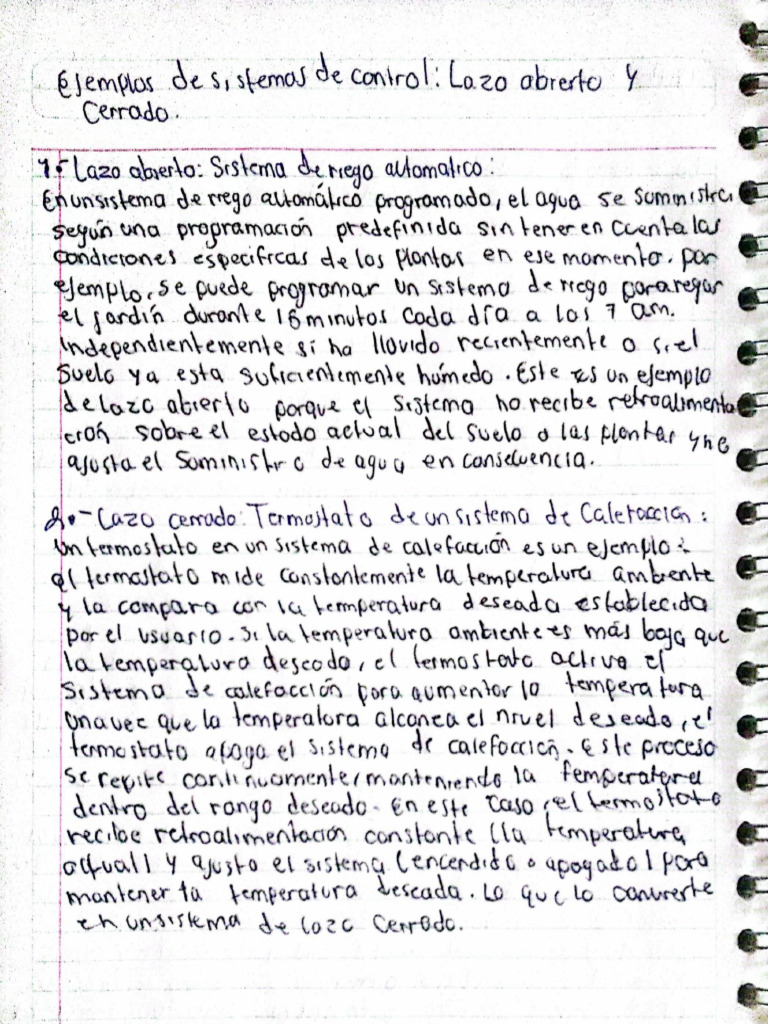 Ejemplos de sistemas de control: Lazo abierto y
Cerrado.
1.- Lazo abierto: Sistema de riego automatico:
En un sistema de riego automático programado, el agua se suministra
según una programación predefinida sin tener en cuenta las
condiciones especificas de las plantas en ese momento. por
ejemplo, se puede programar un sistema de riego para regar
el jardín durante 15 minutos cada día a las 7 am.
Independientemente si ha llovido recientemente o si el
suelo ya esta suficientemente húmedo. Este es un ejemplo
de lazo abierto porque el sistema no recibe retroalimenta
ción sobre el estado actual del suelo o las plantas y no
ajusta el suministro de agua en consecuencia.
2.- Lazo cerrado: Termostato de un sistema de Calefacción:
Un termostato en un sistema de calefacción es un ejemplo:
el termostato mide constantemente la temperatura ambiente
y la compara con la temperatura deseada establecida
por el usuario. Si la temperatura ambiente es más baja que
la temperatura deseada, el termostato activa el
sistema de calefacción para aumentar la temperatura
una vez que la temperatura alcanza el nivel deseado, el
termostato apaga el sistema de calefacción. Este proceso
se repite continuamente, manteniendo la temperatura
dentro del rango deseado. En este caso, el termostato
recibe retroalimentación constante (la temperatura
actual) y ajusta el sistema (encendido o apagado) para
mantener la temperatura deseada. Lo que lo convierte
en un sistema de lazo cerrado.